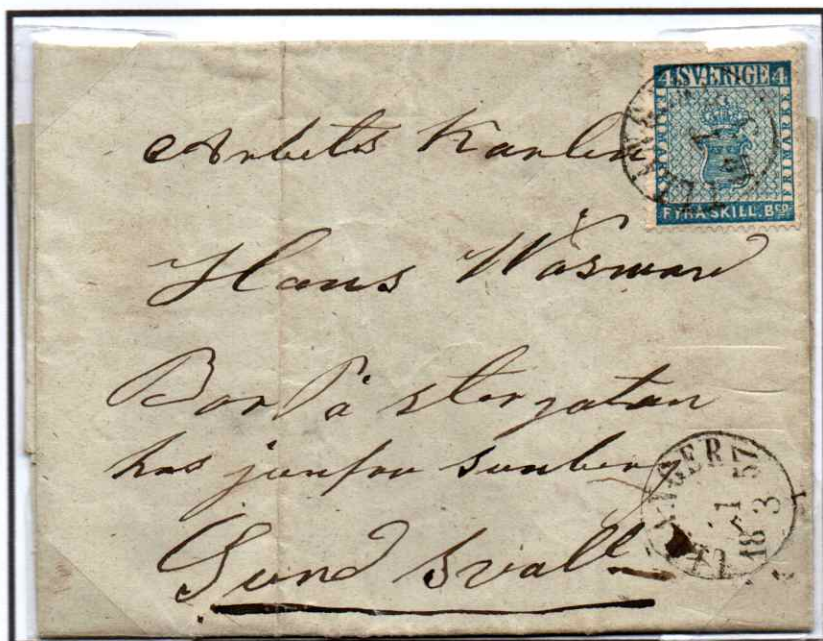 4 SVERIGE 4
FRIMÄRKE
FYRA SKILL. Bco
Arbets Karlen
Hans Wäsman
Bor På storgatan
hos junfru sunber
Sund svall
1857
1
3